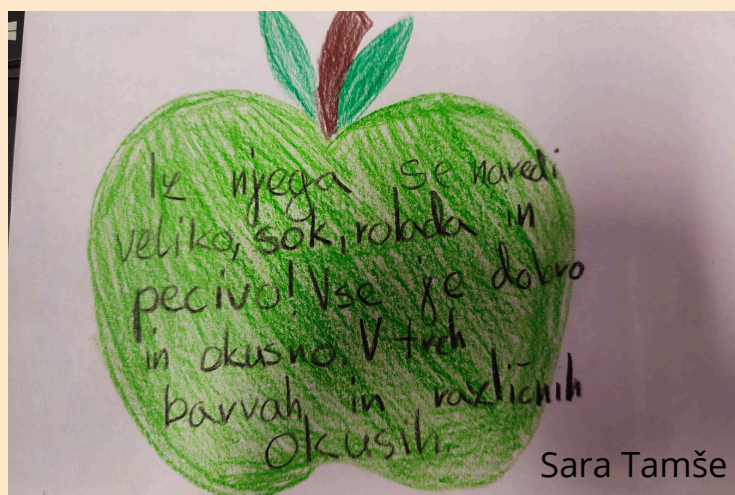 Iz njega se naredi
veliko, sok, rolada in
pecivo! Vse je dobro
in okusno. V treh
barvah in različnih
okusih.
Sara Tamše